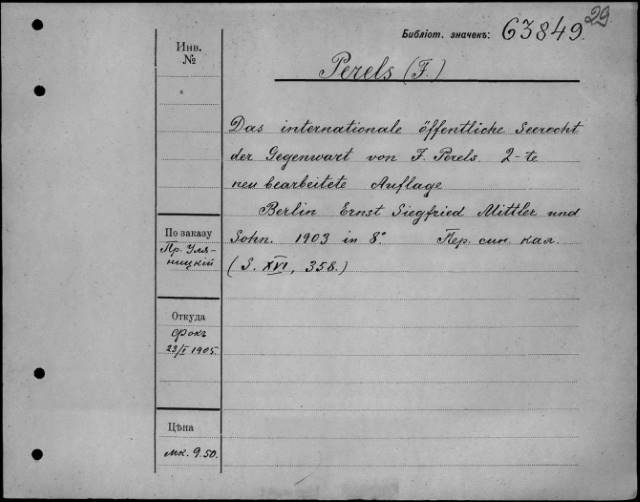 29
Библіот. значекъ: 63849.
Инв.
№
Perels (F.)
Das internationale öffentliche Seerecht
der Gegenwart von F. Perels. 2-te
neu bearbeitete Auflage
Berlin Ernst Siegfried Mittler und
Sohn. 1903 in 8° Пер. син. кал.
(S. XVI, 358.)
По заказу
Пр. Уля-
ницкій
Откуда
Фокъ
23/I 1905.
Цѣна
мк. 9.50.